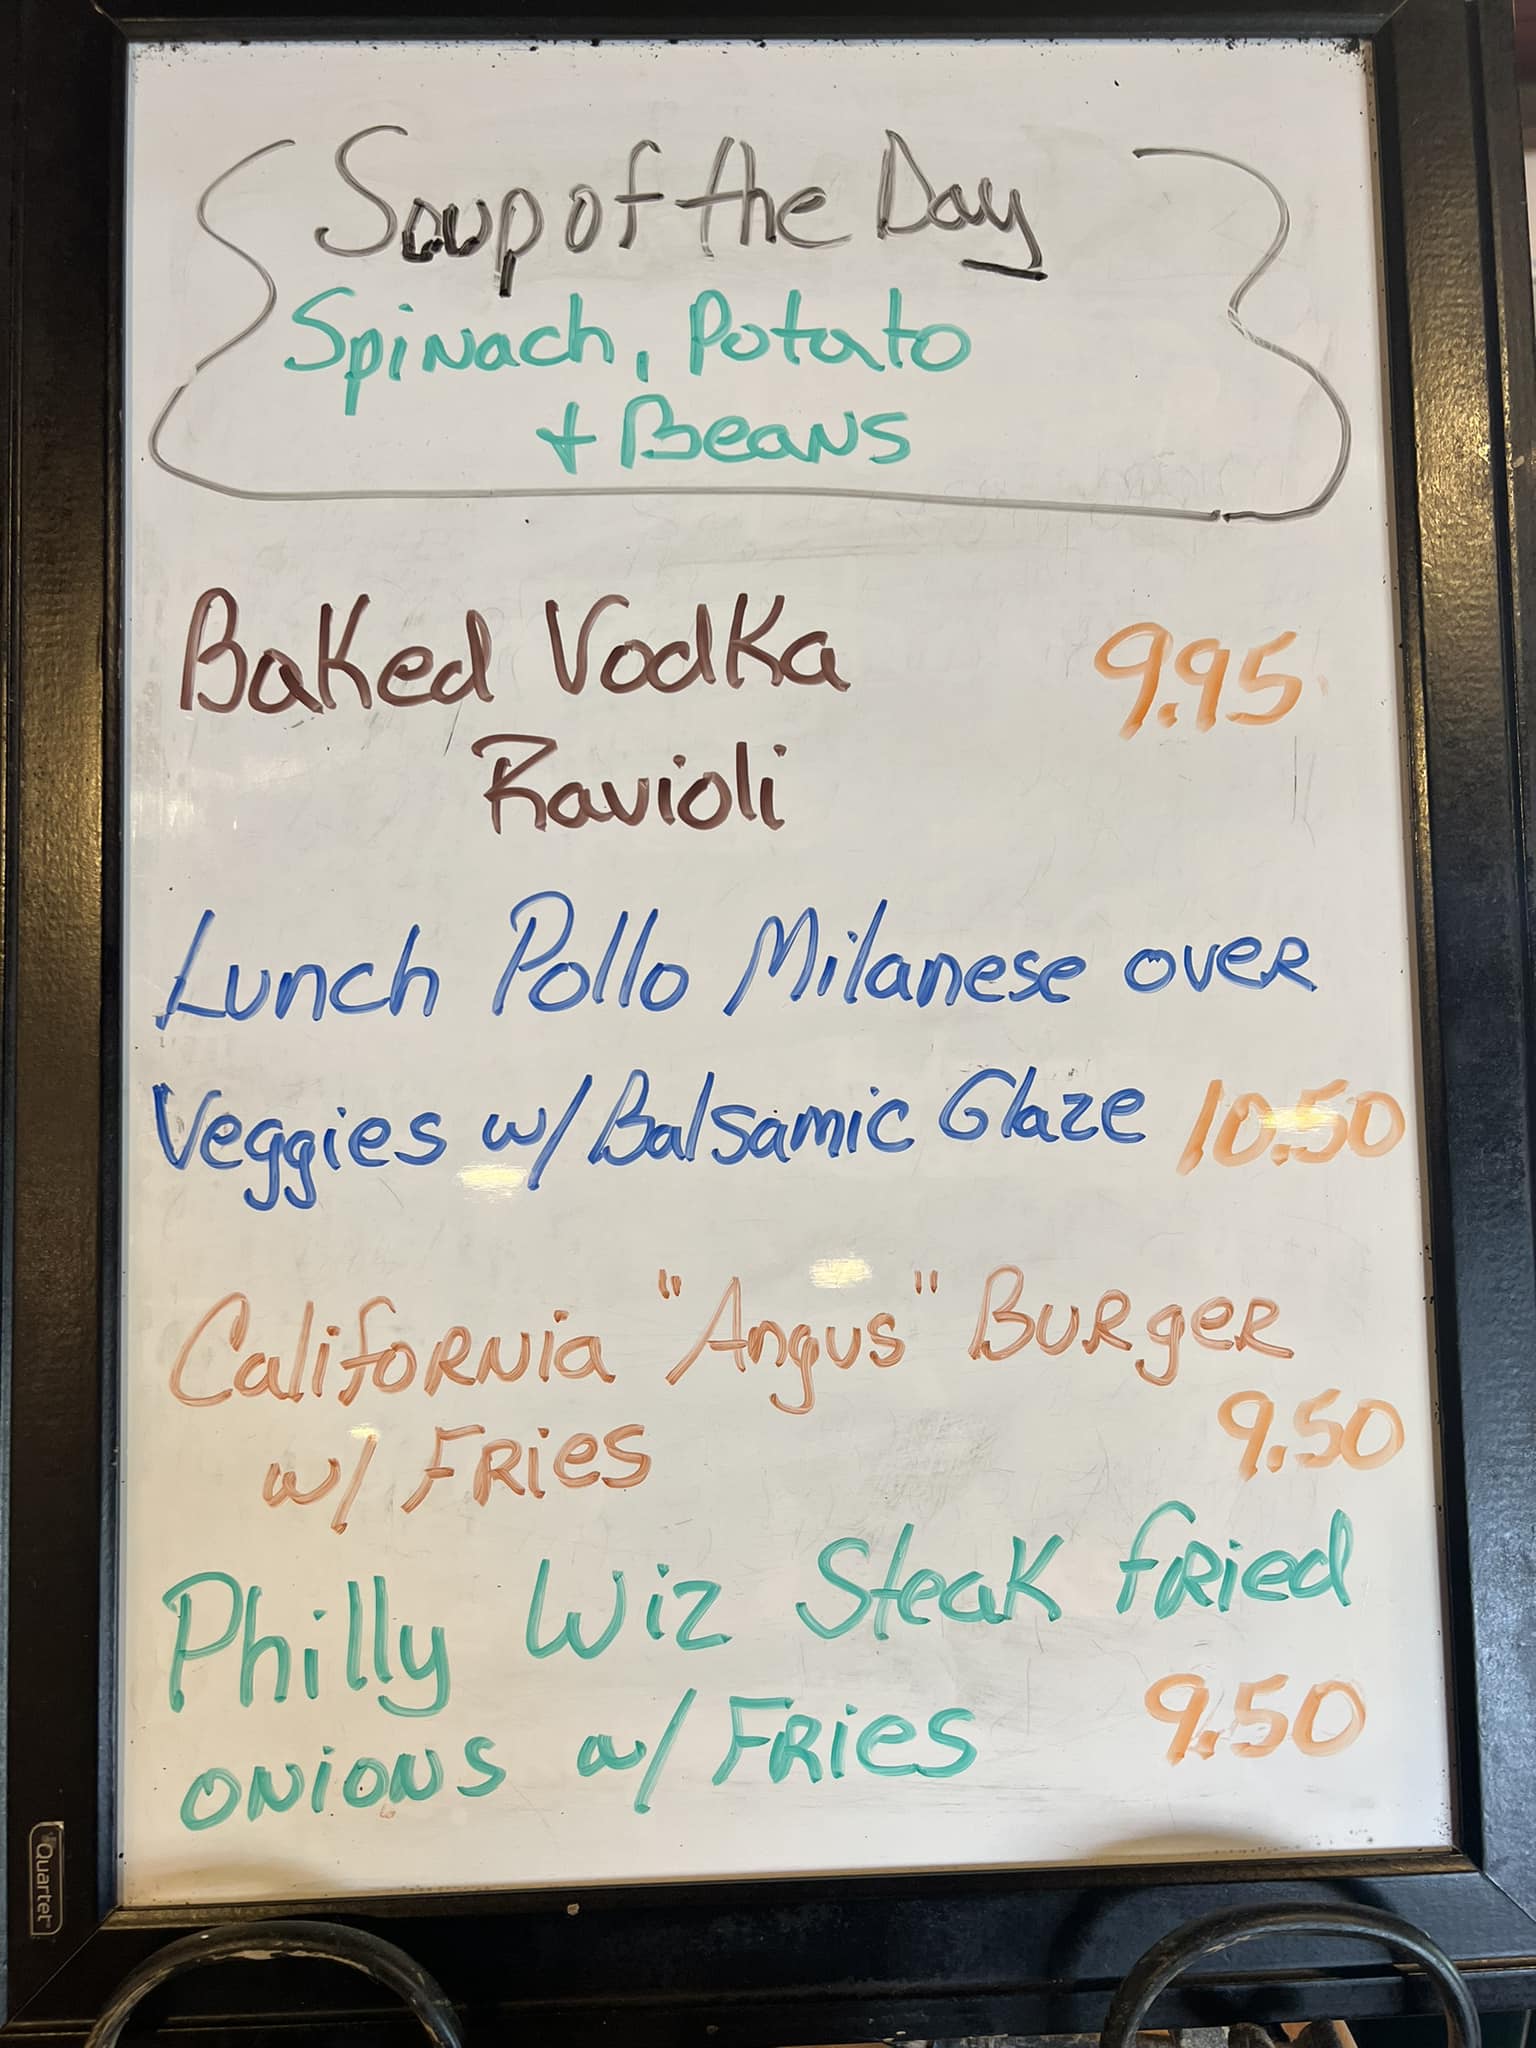 Soup of the Day
Spinach, Potato
+ Beans
Baked Vodka 9.95
Ravioli
Lunch Pollo Milanese over
Veggies w/ Balsamic Glaze 10.50
California "Angus" Burger
w/ Fries 9.50
Philly Wiz Steak fried
onions w/ Fries 9.50
Quartet